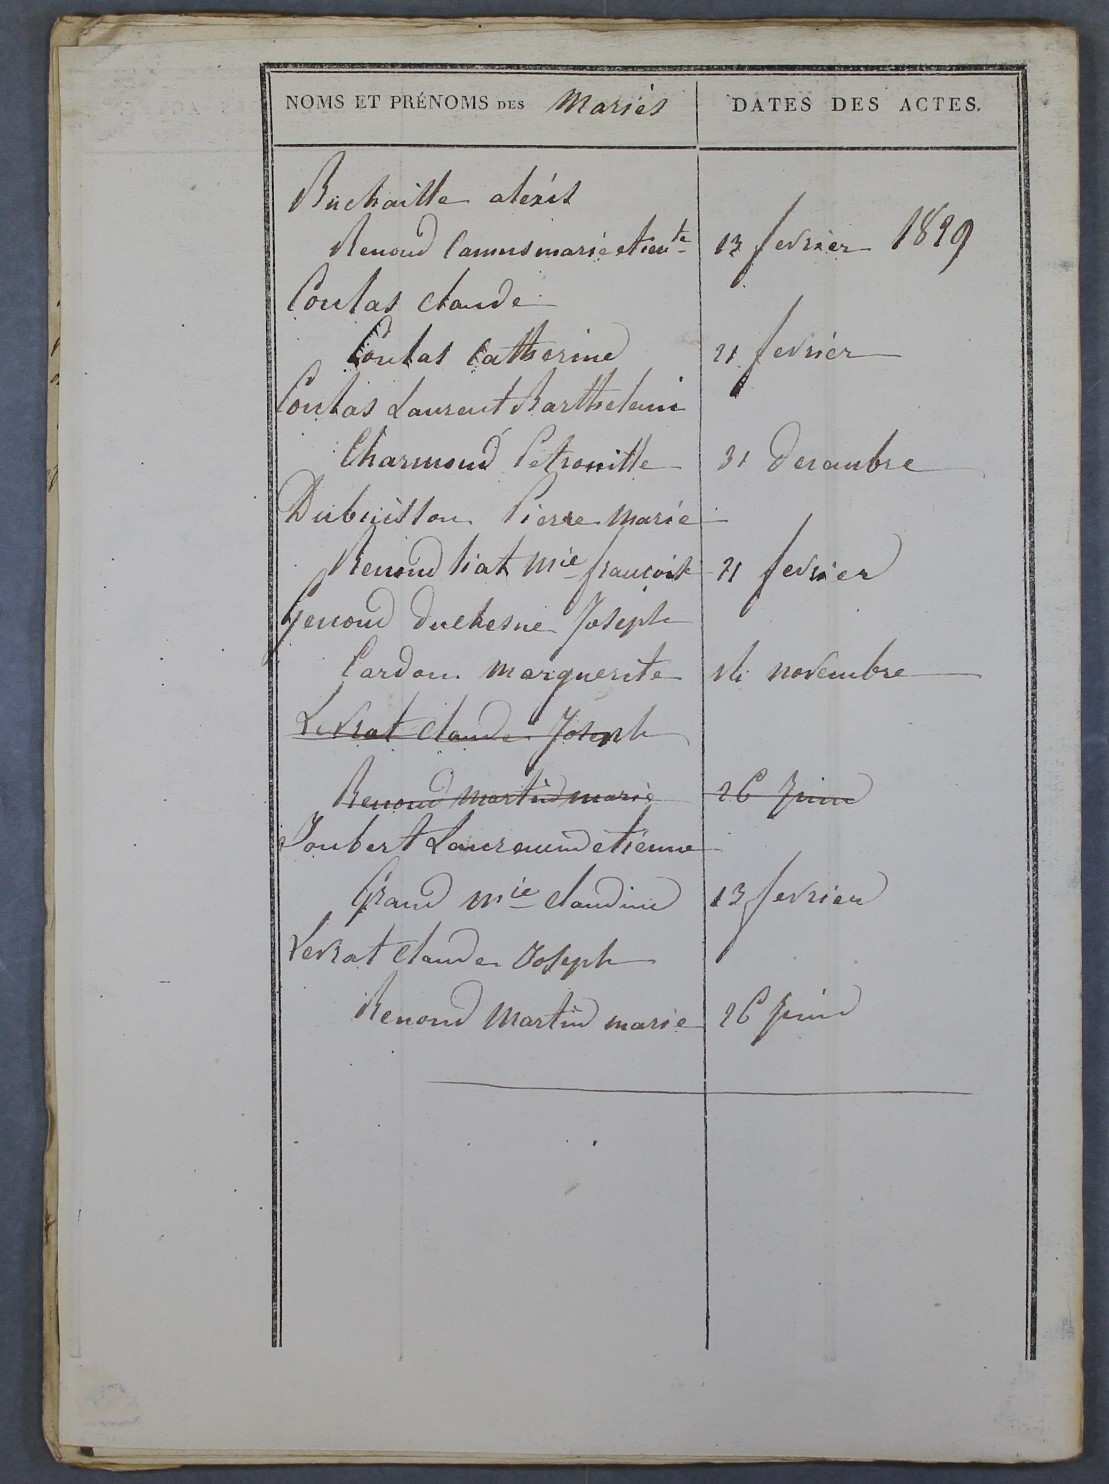 NOMS ET PRÉNOMS DES Mariés DATES DES ACTES.
Buchaille alexis
Renoud Camus marie etien^te 13 fevrier 1829
Coulas claude
Coulas Catherine 21 fevrier
Coulas Laurent Barthelemi
Charmond Petronille 31 decembre
Dubuisson Pierre marie
Renoud liat M^ie francoise 21 fevrier
Genoud duchesne Joseph
Cardon marguerite novembre
Levrat claude Joseph
Renoud Martin marie 26 Juin
Joubert etienne
Grand M^ie claudine 13 fevrier
Levrat claude Joseph
Renoud Martin marie 26 Juin